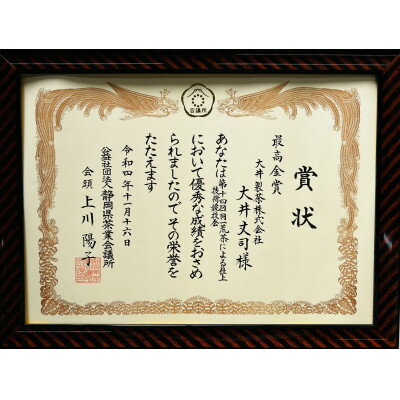 会議所
賞状
最高金賞
大井製茶株式会社
大井丈司様
あなたは第十四回同一荒茶による仕上
技術競技会
において優秀な成績をおさめ
られましたのでその栄誉を
たたえます
令和四年十一月十六日
公益社団法人静岡県茶業会議所
会頭 上川陽子